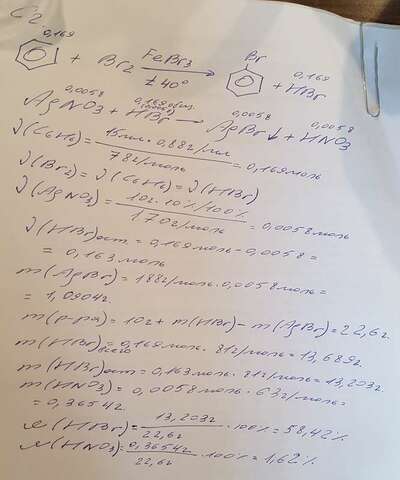 C2.
0,169 Br 0,169
+ Br2 FeBr3 t 40° → + HBr
0,0058 0,169 0,0058 0,0058
AgNO3 + HBr → AgBr↓ + HNO3
ν(C6H6) = 15мл · 0,88г/мл / 78г/моль = 0,169моль
ν(Br2) = ν(C6H6) = ν(HBr)
ν(AgNO3) = 10г · 10%/100% / 170г/моль = 0,0058моль
ν(HBr)ост = 0,169моль - 0,0058 =
= 0,163моль
m(AgBr) = 188г/моль · 0,0058моль =
= 1,0904г.
m(р-ра) = 10г + m(HBr) - m(AgBr) = 22,6г.
m(HBr)всего = 0,169моль · 81г/моль = 13,689г.
m(HBr)ост = 0,163моль · 81г/моль = 13,203г.
m(HNO3) = 0,0058моль · 63г/моль =
= 0,3654г.
ω(HBr) = 13,203г / 22,6г · 100% = 58,42%
ω(HNO3) = 0,3654г / 22,6г · 100% = 1,62%